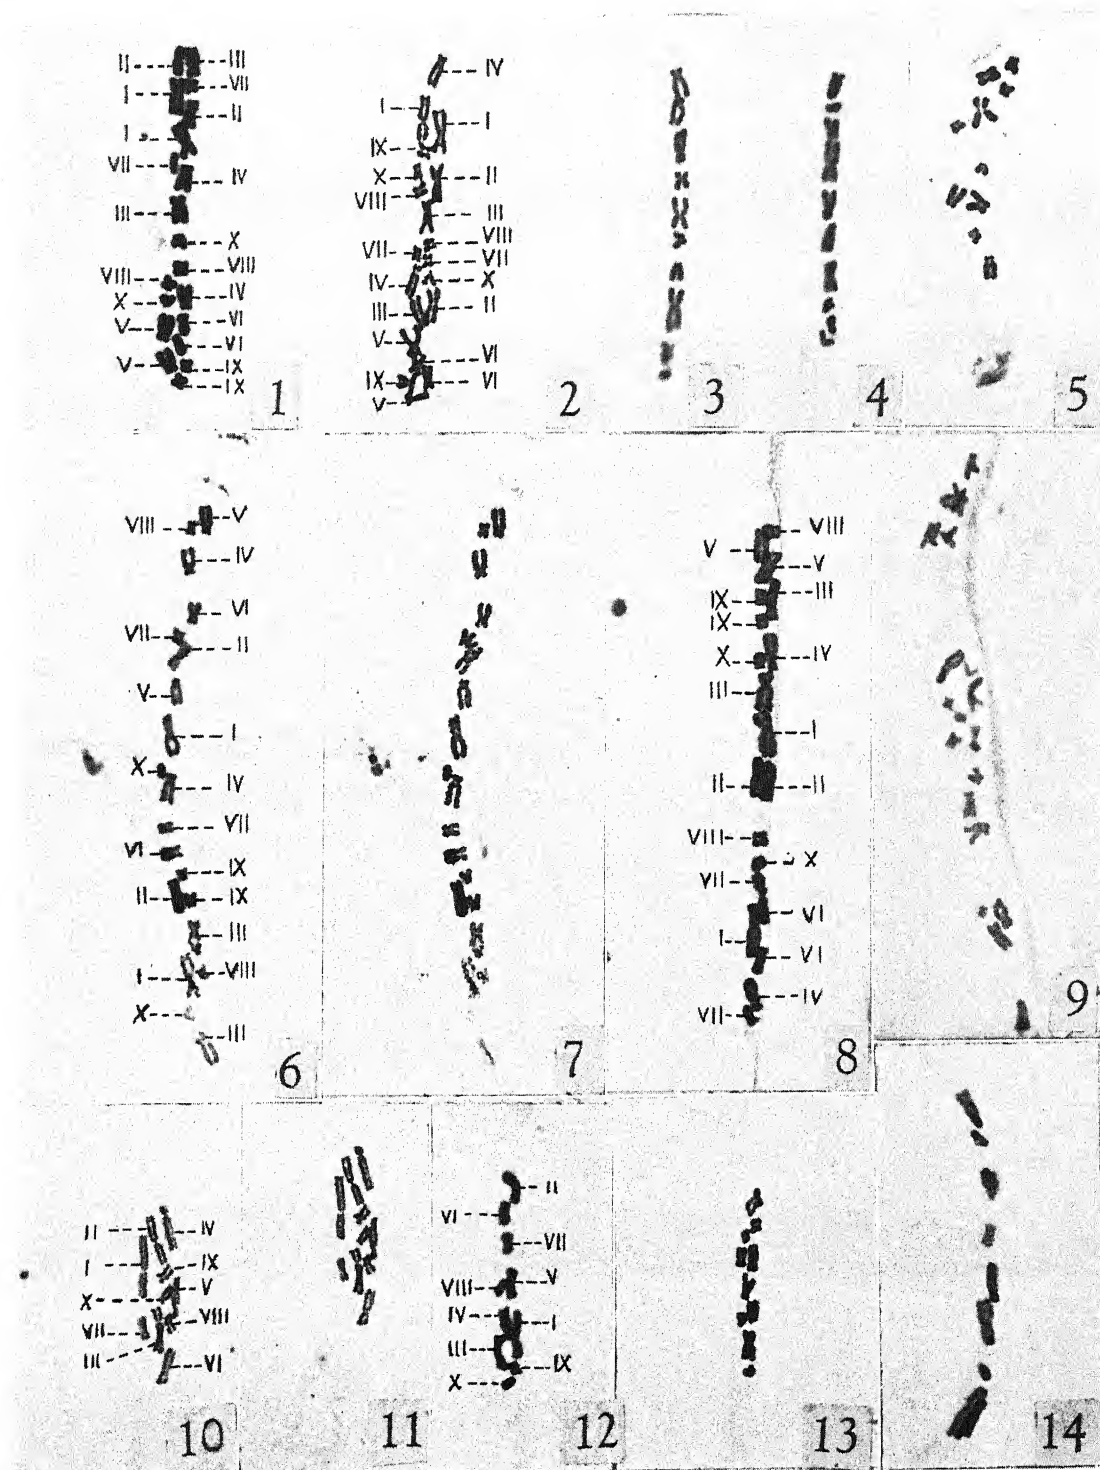 II III
I VII
II
I
VII
IV
III
X
VIII
VIII
X IV
V VI
VI
V IX
IX
1
IV
I I
IX
X II
VIII
III
VIII
VII VII
IV X
III II
V
VI
IX VI
V
2
3
4
5
VIII V
IV
VI
VII II
V
I
X
IV
VII
VI
IX
II IX
III
I VIII
X
III
6
7
VIII
V V
III
IX
IX
X IV
III
I
II II
VIII
X
VII
VI
I
VI
IV
VII
8
9
II IV
I IX
X V
VIII
VII
III
VI
10
11
II
VI
VII
V
VIII
IV I
III
IX
X
12
13
14